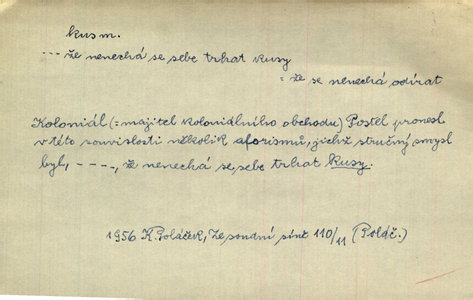 kus m.
--- že nenechá se sebe trhat kusy
= že se nenechá odírat
Koloniál (= majitel koloniálního obchodu) Postel pronesl
v této souvislosti několik aforismů, jichž stručný smysl
byl, ----, že nenechá se sebe trhat kusy.
1956 K. Poláček, Ze soudní síně 110/11 (Poláč.)